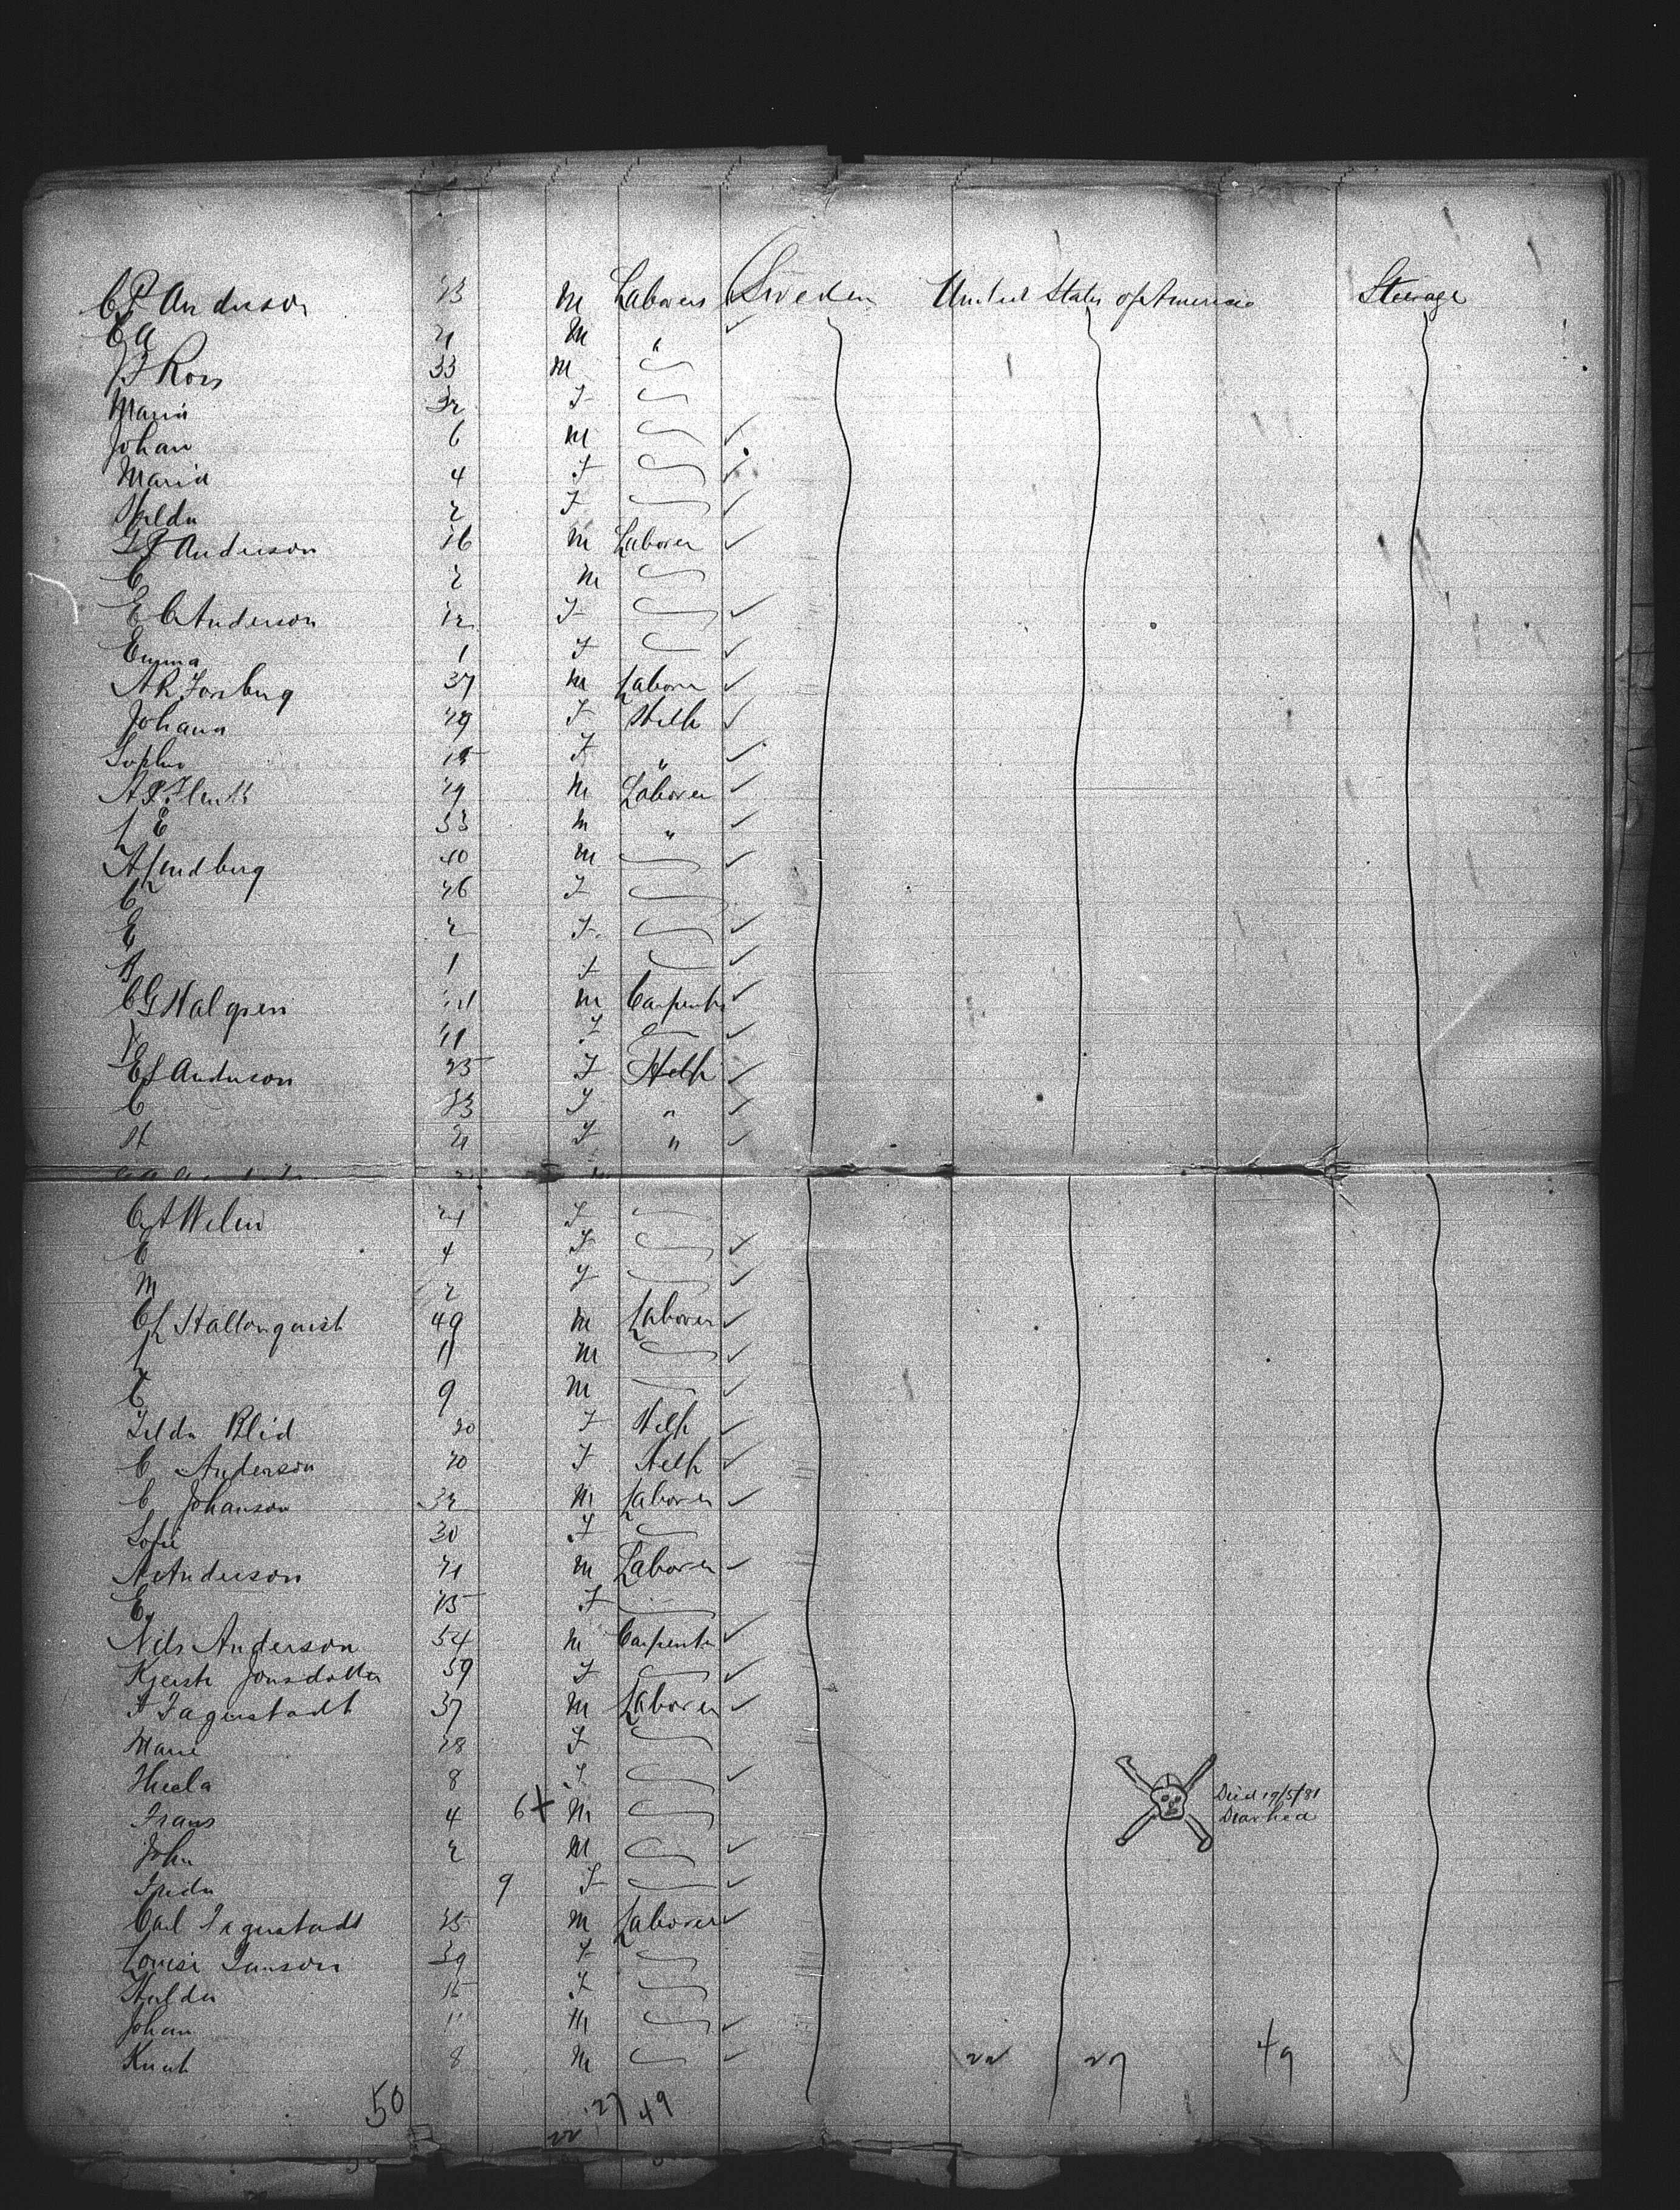 C P Anderson 23 M Laborers Sweden United States of America Steerage
C A 21 M "
J Ross 33 M
Maria 32 F
Johan 6 M
Maria 4 F
Hilda 2 F
Anderson 26 M Laborer
C 2 M
E C Anderson 22 F
Emma 1 F
A R Forsberg 37 M Laborer
Johana 29 F Help
Sophia 15 F "
A P 29 M Laborer
L E 33 M "
A Lindberg 40 M
C 26 F
E 2 F
A 1 F
C G Halgren M Carpenter
21 F
E S Anderson 25 F Help
C 23 F "
H 21 F "
C A Welin 24 F
E 4 F
M 2 F
C L Hallonquist 49 M Laborer
L 11 M
C 9 M
Blid 20 F Help
C Anderson 20 F Help
C Johanson 32 M Laborer
Sofie 30 F
A Anderson 21 M Laborer
E 25 F
Nils Anderson 54 M Carpenter
Kjersti Jonsdotter 59 F
A Fagerstadt 37 M Laborer
Marie 28 F
Thecla 8 F
Frans 4 6 + M Died 19/5/81
Diarhea
John 2 M
Frida 9 F
Carl Fagerstadt 25 M Laborer
Louise Janson 39 F
Hulda 15 F
Johan 11 M
Knut 8 M 22 27 49
50 22 27 49